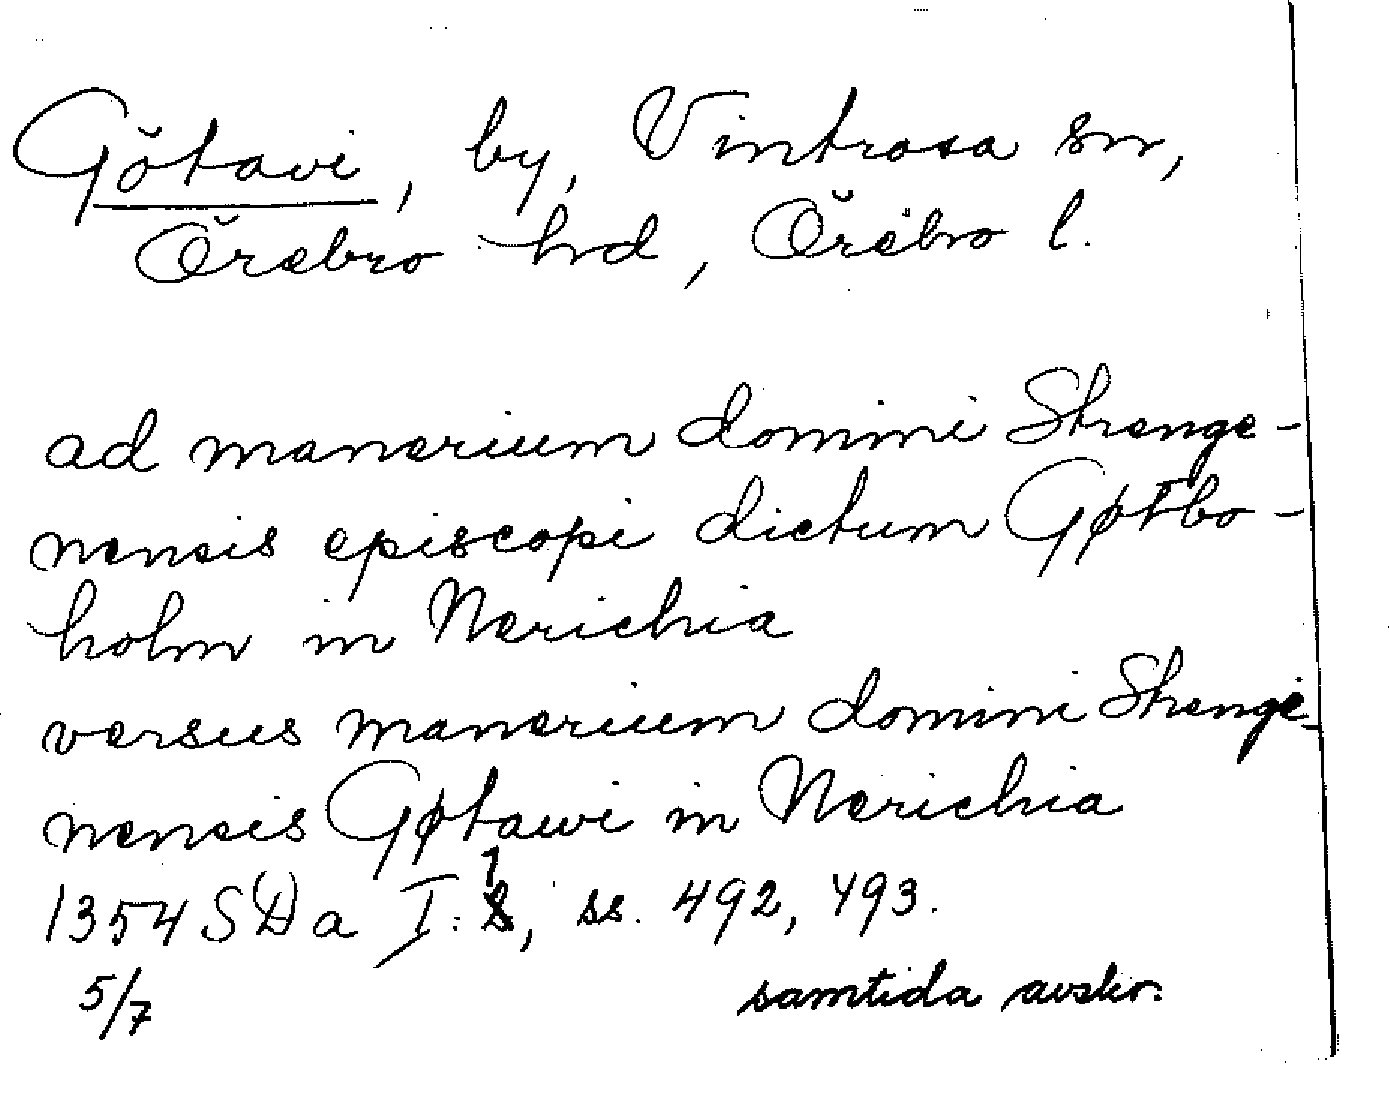 Götavi, by, Vintrosa sn,
Örebro hrd, Örebro l.
ad manerium domini Strenge-
nensis episcopi dictum Gøtbo-
holm in Nerichia
versus manerium domini Strenge-
nensis Gøtawi in Nerichia
1354 SD a I: 1, ss. 492, 493.
5/7
samtida avskr.